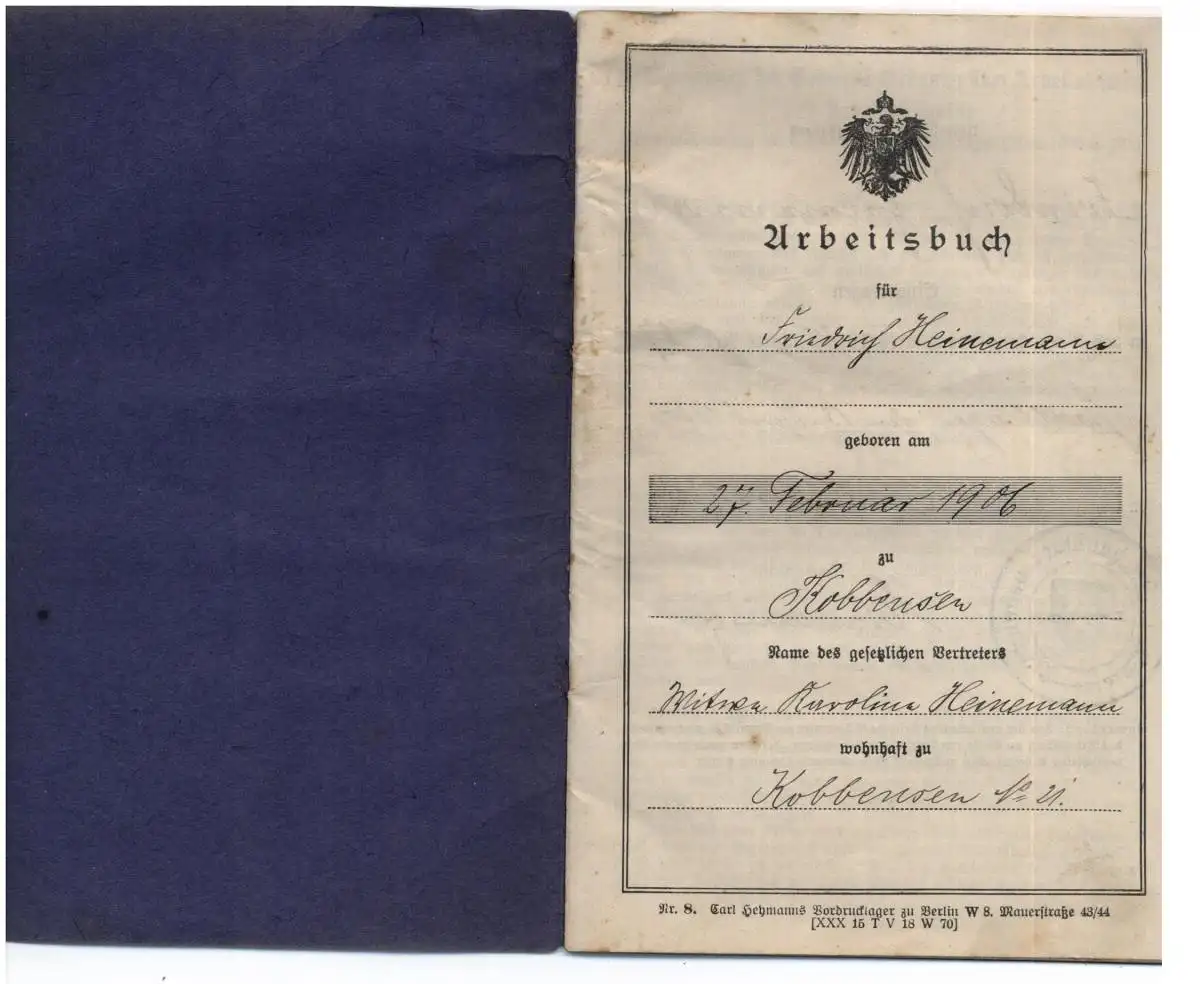 Arbeitsbuch
für
Friedrich Heinemann
geboren am
27. Februar 1906
zu
Kobbensen
Name des gesetzlichen Vertreters
Witwe Karoline Heinemann
wohnhaft zu
Kobbensen No 21.
Nr. 8. Carl Heymanns Vordrucklager zu Berlin W 8. Mauerstraße 43/44
[XXX 15 T V 18 W 70]